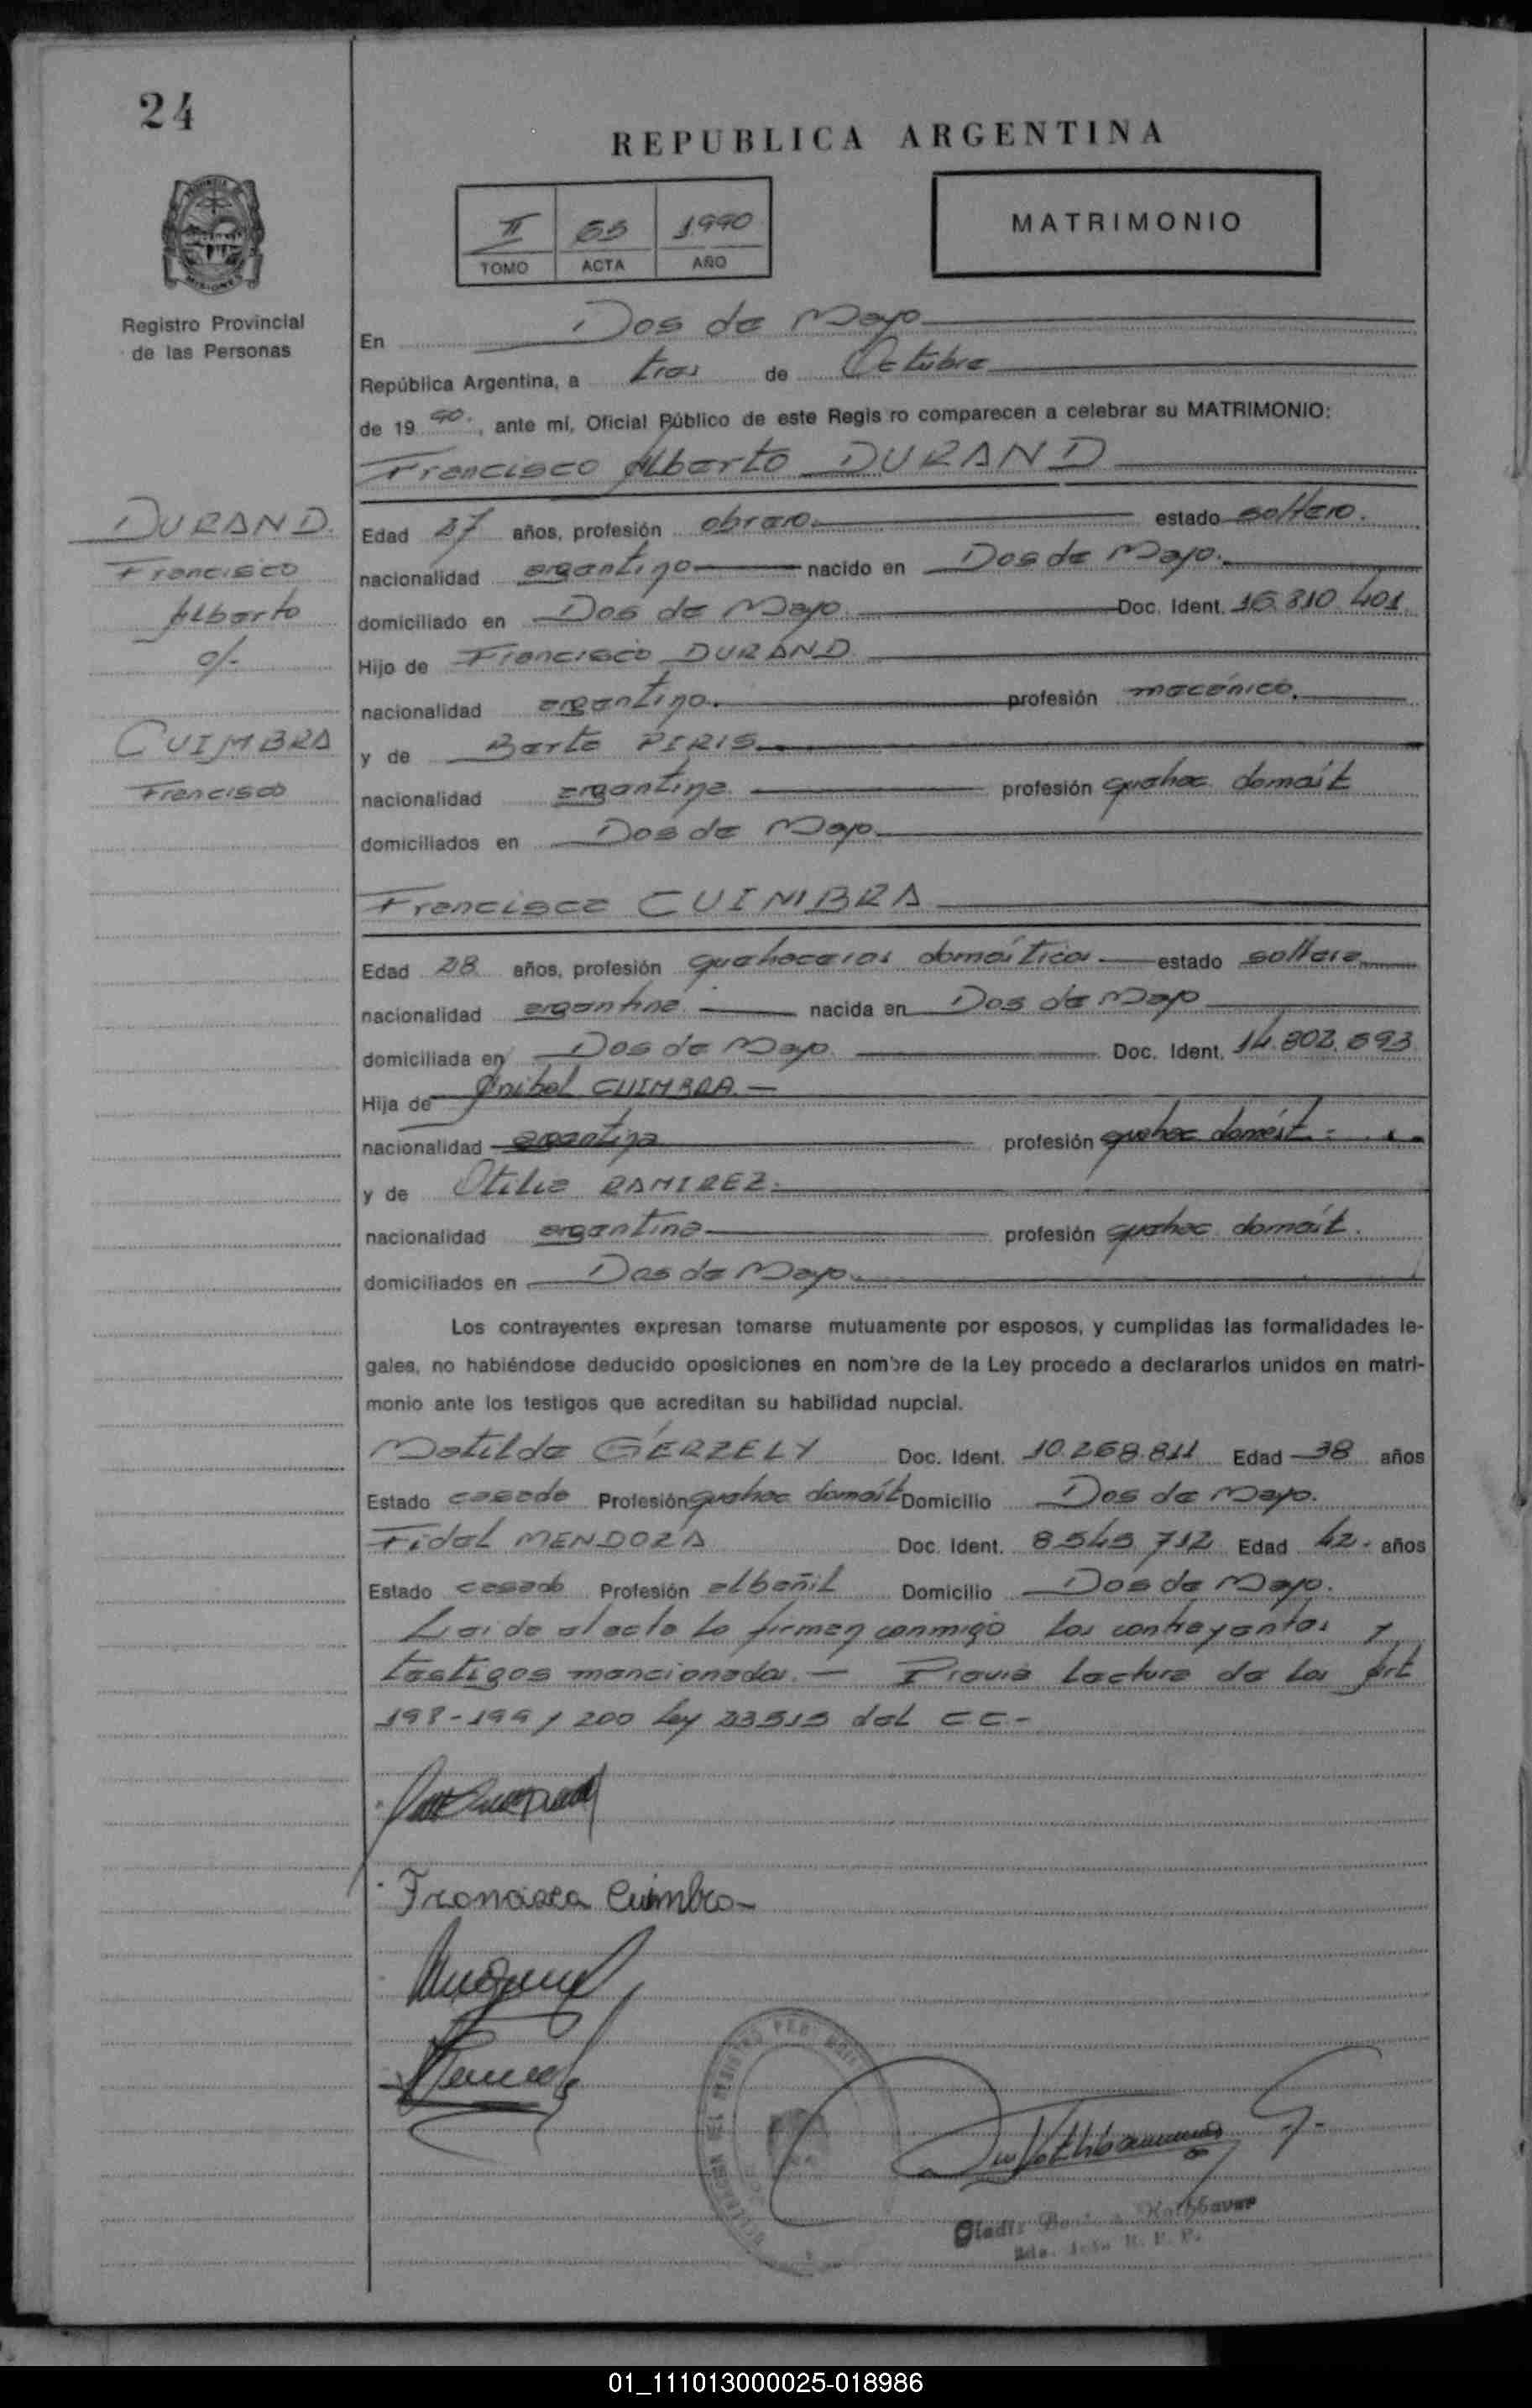 24
REPUBLICA ARGENTINA
II 65 1990
TOMO ACTA AÑO
MATRIMONIO
Registro Provincial
de las Personas
En Dos de Mayo
República Argentina, a tres de Octubre
de 19 90, ante mí, Oficial Público de este Regis ro comparecen a celebrar su MATRIMONIO:
Francisco Alberto DURAND
DURAND.
Francisco
Alberto
c/-
CUIMBRA
Francisca
Edad 27 años, profesión obrero. estado soltero.
nacionalidad argentino nacido en Dos de Mayo.
domiciliado en Dos de Mayo. Doc. Ident. 16.810.401
Hijo de Francisco DURAND
nacionalidad argentino. profesión mecánico.
y de Berta PIRIS
nacionalidad argentina. profesión quehac. domést
domiciliados en Dos de Mayo.
Francisca CUIMBRA
Edad 28 años, profesión quehaceres domésticos estado soltera
nacionalidad argentina nacida en Dos de Mayo
domiciliada en Dos de Mayo. Doc. Ident. 14.802.693
Hija de Anibal CUIMBRA.-
nacionalidad argentina profesión quehac domést.-
y de Otilia RAMIREZ.
nacionalidad argentina profesión quehac domést.
domiciliados en Dos de Mayo.
Los contrayentes expresan tomarse mutuamente por esposos, y cumplidas las formalidades le-
gales, no habiéndose deducido oposiciones en nombre de la Ley procedo a declararlos unidos en matri-
monio ante los testigos que acreditan su habilidad nupcial.
Matilde GERZELY Doc. Ident. 10.268.811 Edad 38 años
Estado casada Profesión quehac domést Domicilio Dos de Mayo.
Fidel MENDOZA Doc. Ident. 8.545.712 Edad 42. años
Estado casado Profesión albañil Domicilio Dos de Mayo.
Leída el acta la firman conmigo los contrayentes y
testigos mencionados.- Previa lectura de los Art
198-199/200 Ley 23515 del CC-
Francisca Cuimbra-
Gladis Rathbauer
R. P. P.
01_111013000025-018986